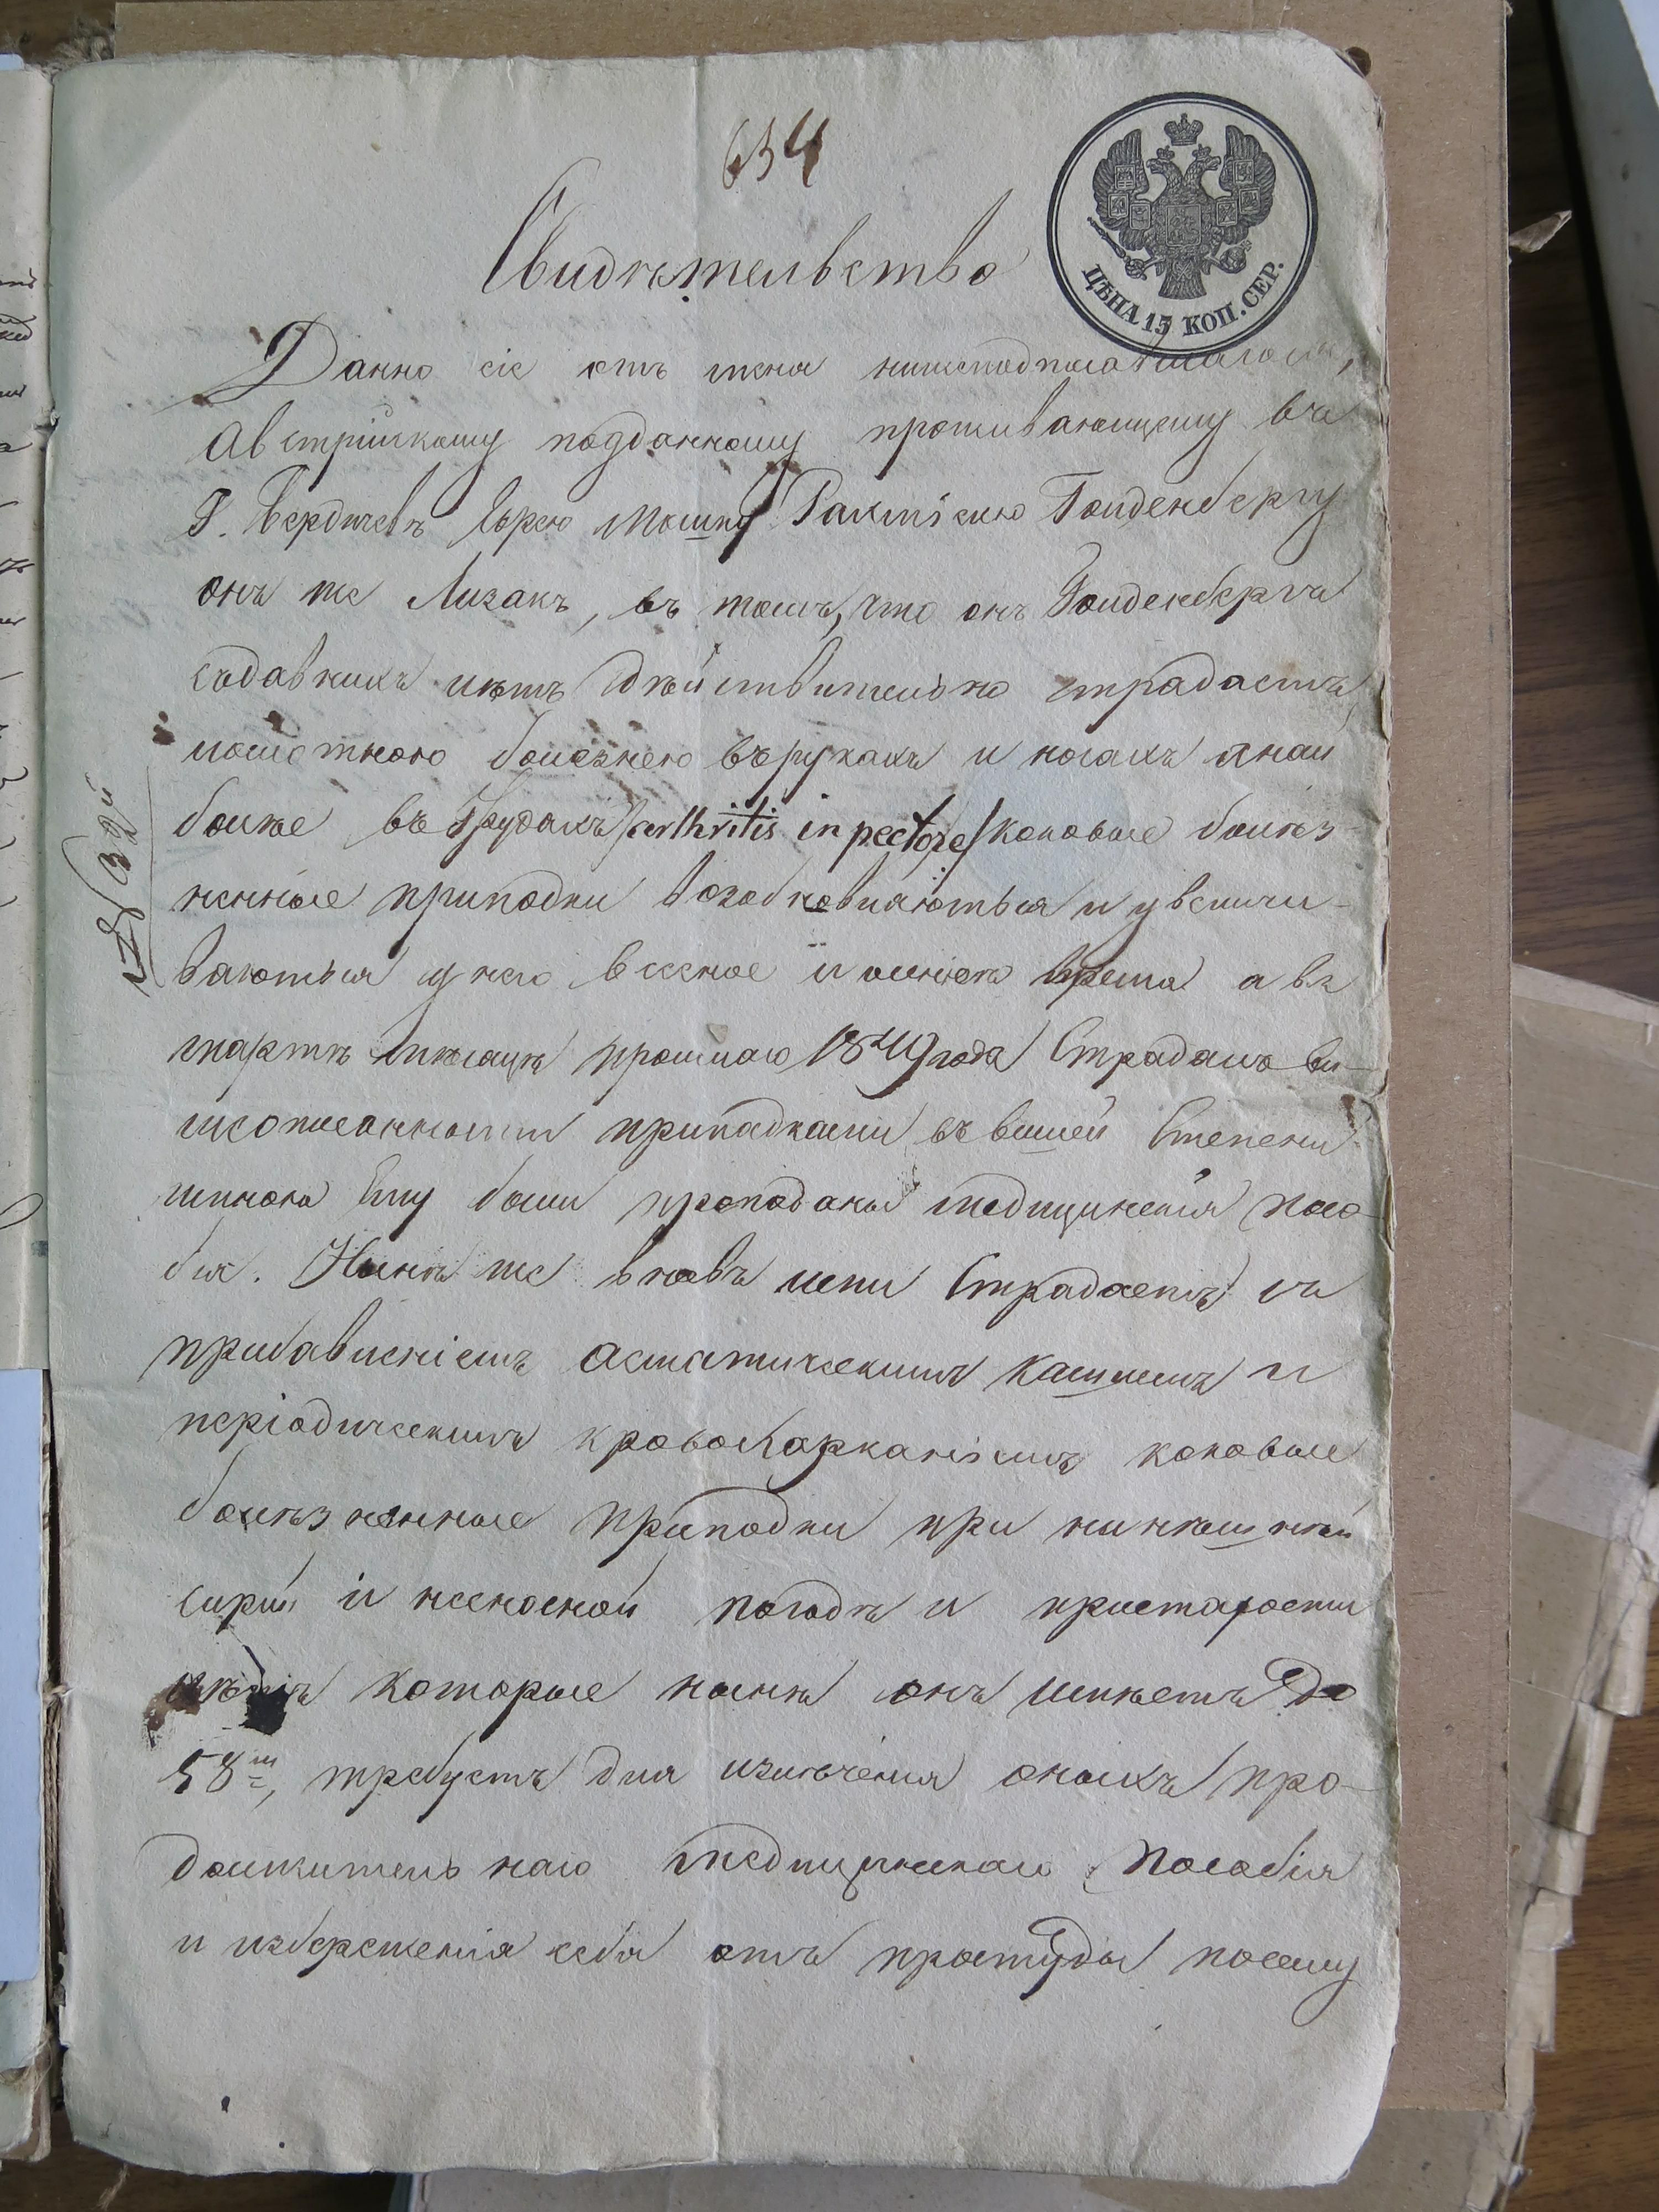 634
ЦѢНА 15 КОП. СЕР.
Свидѣтельство
Данно сіе отъ меня нижеподписавшагося,
Австрійскому подданному проживающему въ
Г. Бердичевѣ Еврею Мошку Гольденбергу
онъ же Лизакъ, въ томъ, что онъ Гольденбергъ
съдавнихъ лѣтъ дѣйствительно страдаетъ
ломотною болезнею въ рукахъ и ногахъ а наи
болѣе въ Грудяхъ /arthritis in pectore/ каковые болѣз-
ненные припадки возобновляються и увеличи-
ваються у него весеное и осинее время а въ
мартѣ мѣсяцѣ прошлаго 1849 года Страдалъ ви-
шеописанными припадками въ вышей Степени
мною Ему были преподаны медицинскія посо-
бія. Нынѣ же вновъ ими Страдаетъ съ
прибавленіемъ асматическимъ кашлемъ и
періодическимъ кровохарканіемъ каковые
болѣзненные припадки при нинѣшней
сирой и неясной погодѣ и пристарости
лѣтъ которые нынѣ онъ имѣетъ до
58ми, требуетъ для излѣченія оныхъ про-
должительнаго медицинскаго Пособія
и избереженія себя отъ простуды посему